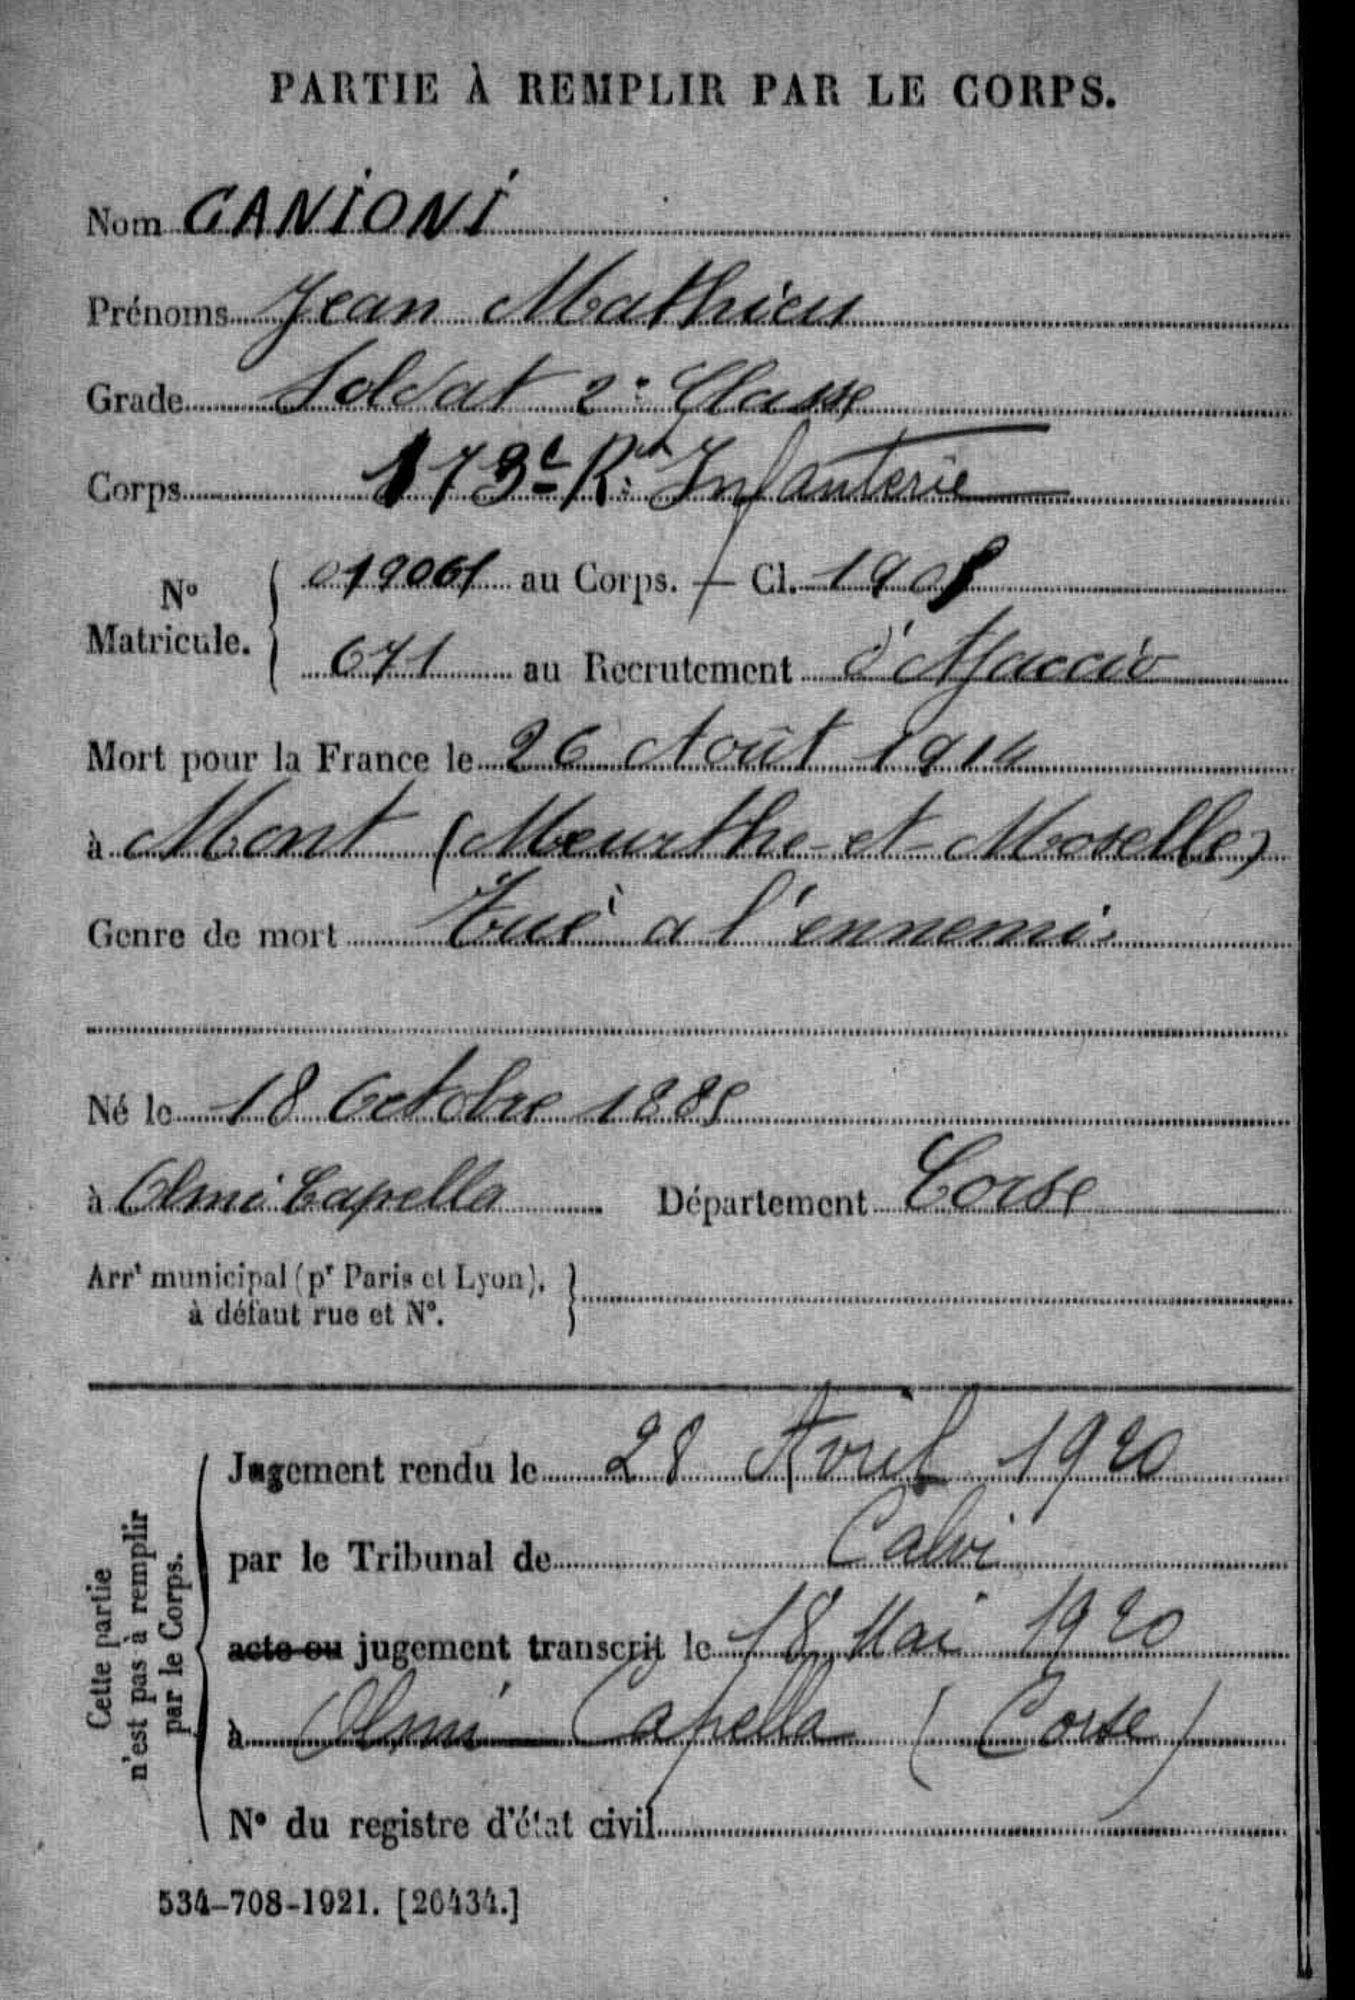 PARTIE À REMPLIR PAR LE CORPS.
Nom CANIONI
Prénoms Jean Mathieu
Grade Soldat 2e Classe
Corps 173e Rt Infanterie
No Matricule. 019061 au Corps. — Cl. 1905
671 au Recrutement d'Ajaccio
Mort pour la France le 26 Août 1914
à Mont (Meurthe-et-Moselle)
Genre de mort Tué à l'ennemi
Né le 18 Octobre 1885
à Olmi Capella Département Corse
Arrt municipal (pr Paris et Lyon),
à défaut rue et No.
Cette partie
n'est pas à remplir
par le Corps.
Jugement rendu le 28 Avril 1920
par le Tribunal de Calvi
acte ou jugement transcrit le 18 Mai 1920
à Olmi Capella (Corse)
No du registre d'état civil
534-708-1921. [26434.]